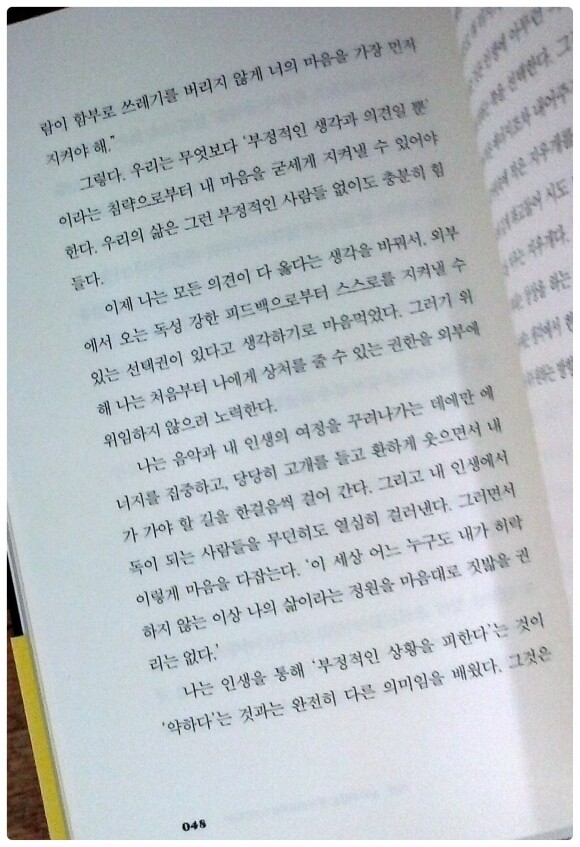 람이 함부로 쓰레기를 버리지 않게 너의 마음을 가장 먼저
지켜야 해.”
그렇다. 우리는 무엇보다 ‘부정적인 생각과 의견일 뿐’
이라는 침략으로부터 내 마음을 굳세게 지켜낼 수 있어야
한다. 우리의 삶은 그런 부정적인 사람들 없이도 충분히 힘
들다.
이제 나는 모든 의견이 다 옳다는 생각을 바꿔서, 외부
에서 오는 독성 강한 피드백으로부터 스스로를 지켜낼 수
있는 선택권이 있다고 생각하기로 마음먹었다. 그러기 위
해 나는 처음부터 나에게 상처를 줄 수 있는 권한을 외부에
위임하지 않으려 노력한다.
나는 음악과 내 인생의 여정을 꾸려나가는 데에만 에
너지를 집중하고, 당당히 고개를 들고 환하게 웃으면서 내
가 가야 할 길을 한걸음씩 걸어 간다. 그리고 내 인생에서
독이 되는 사람들을 무단히도 열심히 걸러낸다. 그러면서
이렇게 마음을 다잡는다. ‘이 세상 어느 누구도 내가 허락
하지 않는 이상 나의 삶이라는 정원을 마음대로 짓밟을 권
리는 없다.’
나는 인생을 통해 ‘부정적인 상황을 피한다’는 것이
‘약하다’는 것과는 완전히 다른 의미임을 배웠다. 그것은
048